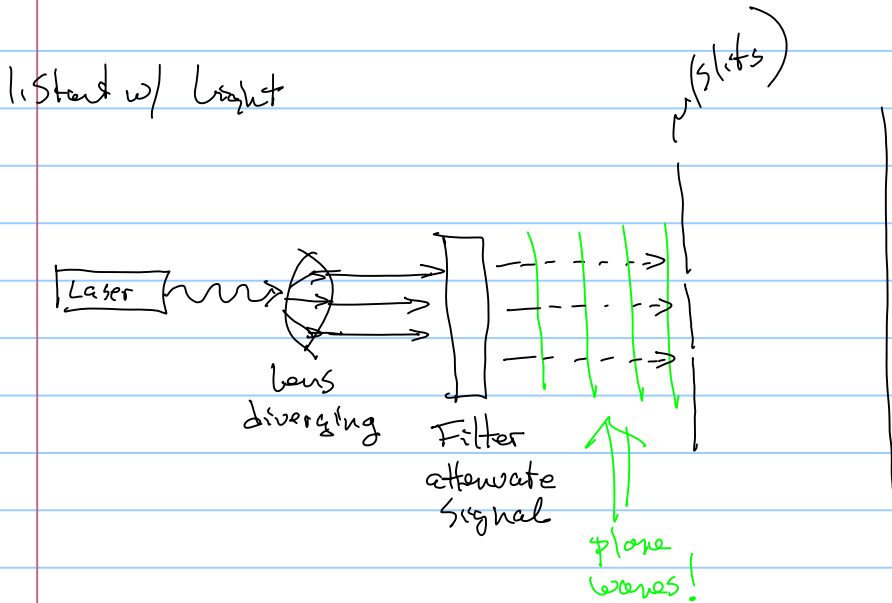 1. Start w/ Light
(slits)
Laser
Lens
diverging
Filter
attenuate
signal
plane
waves!